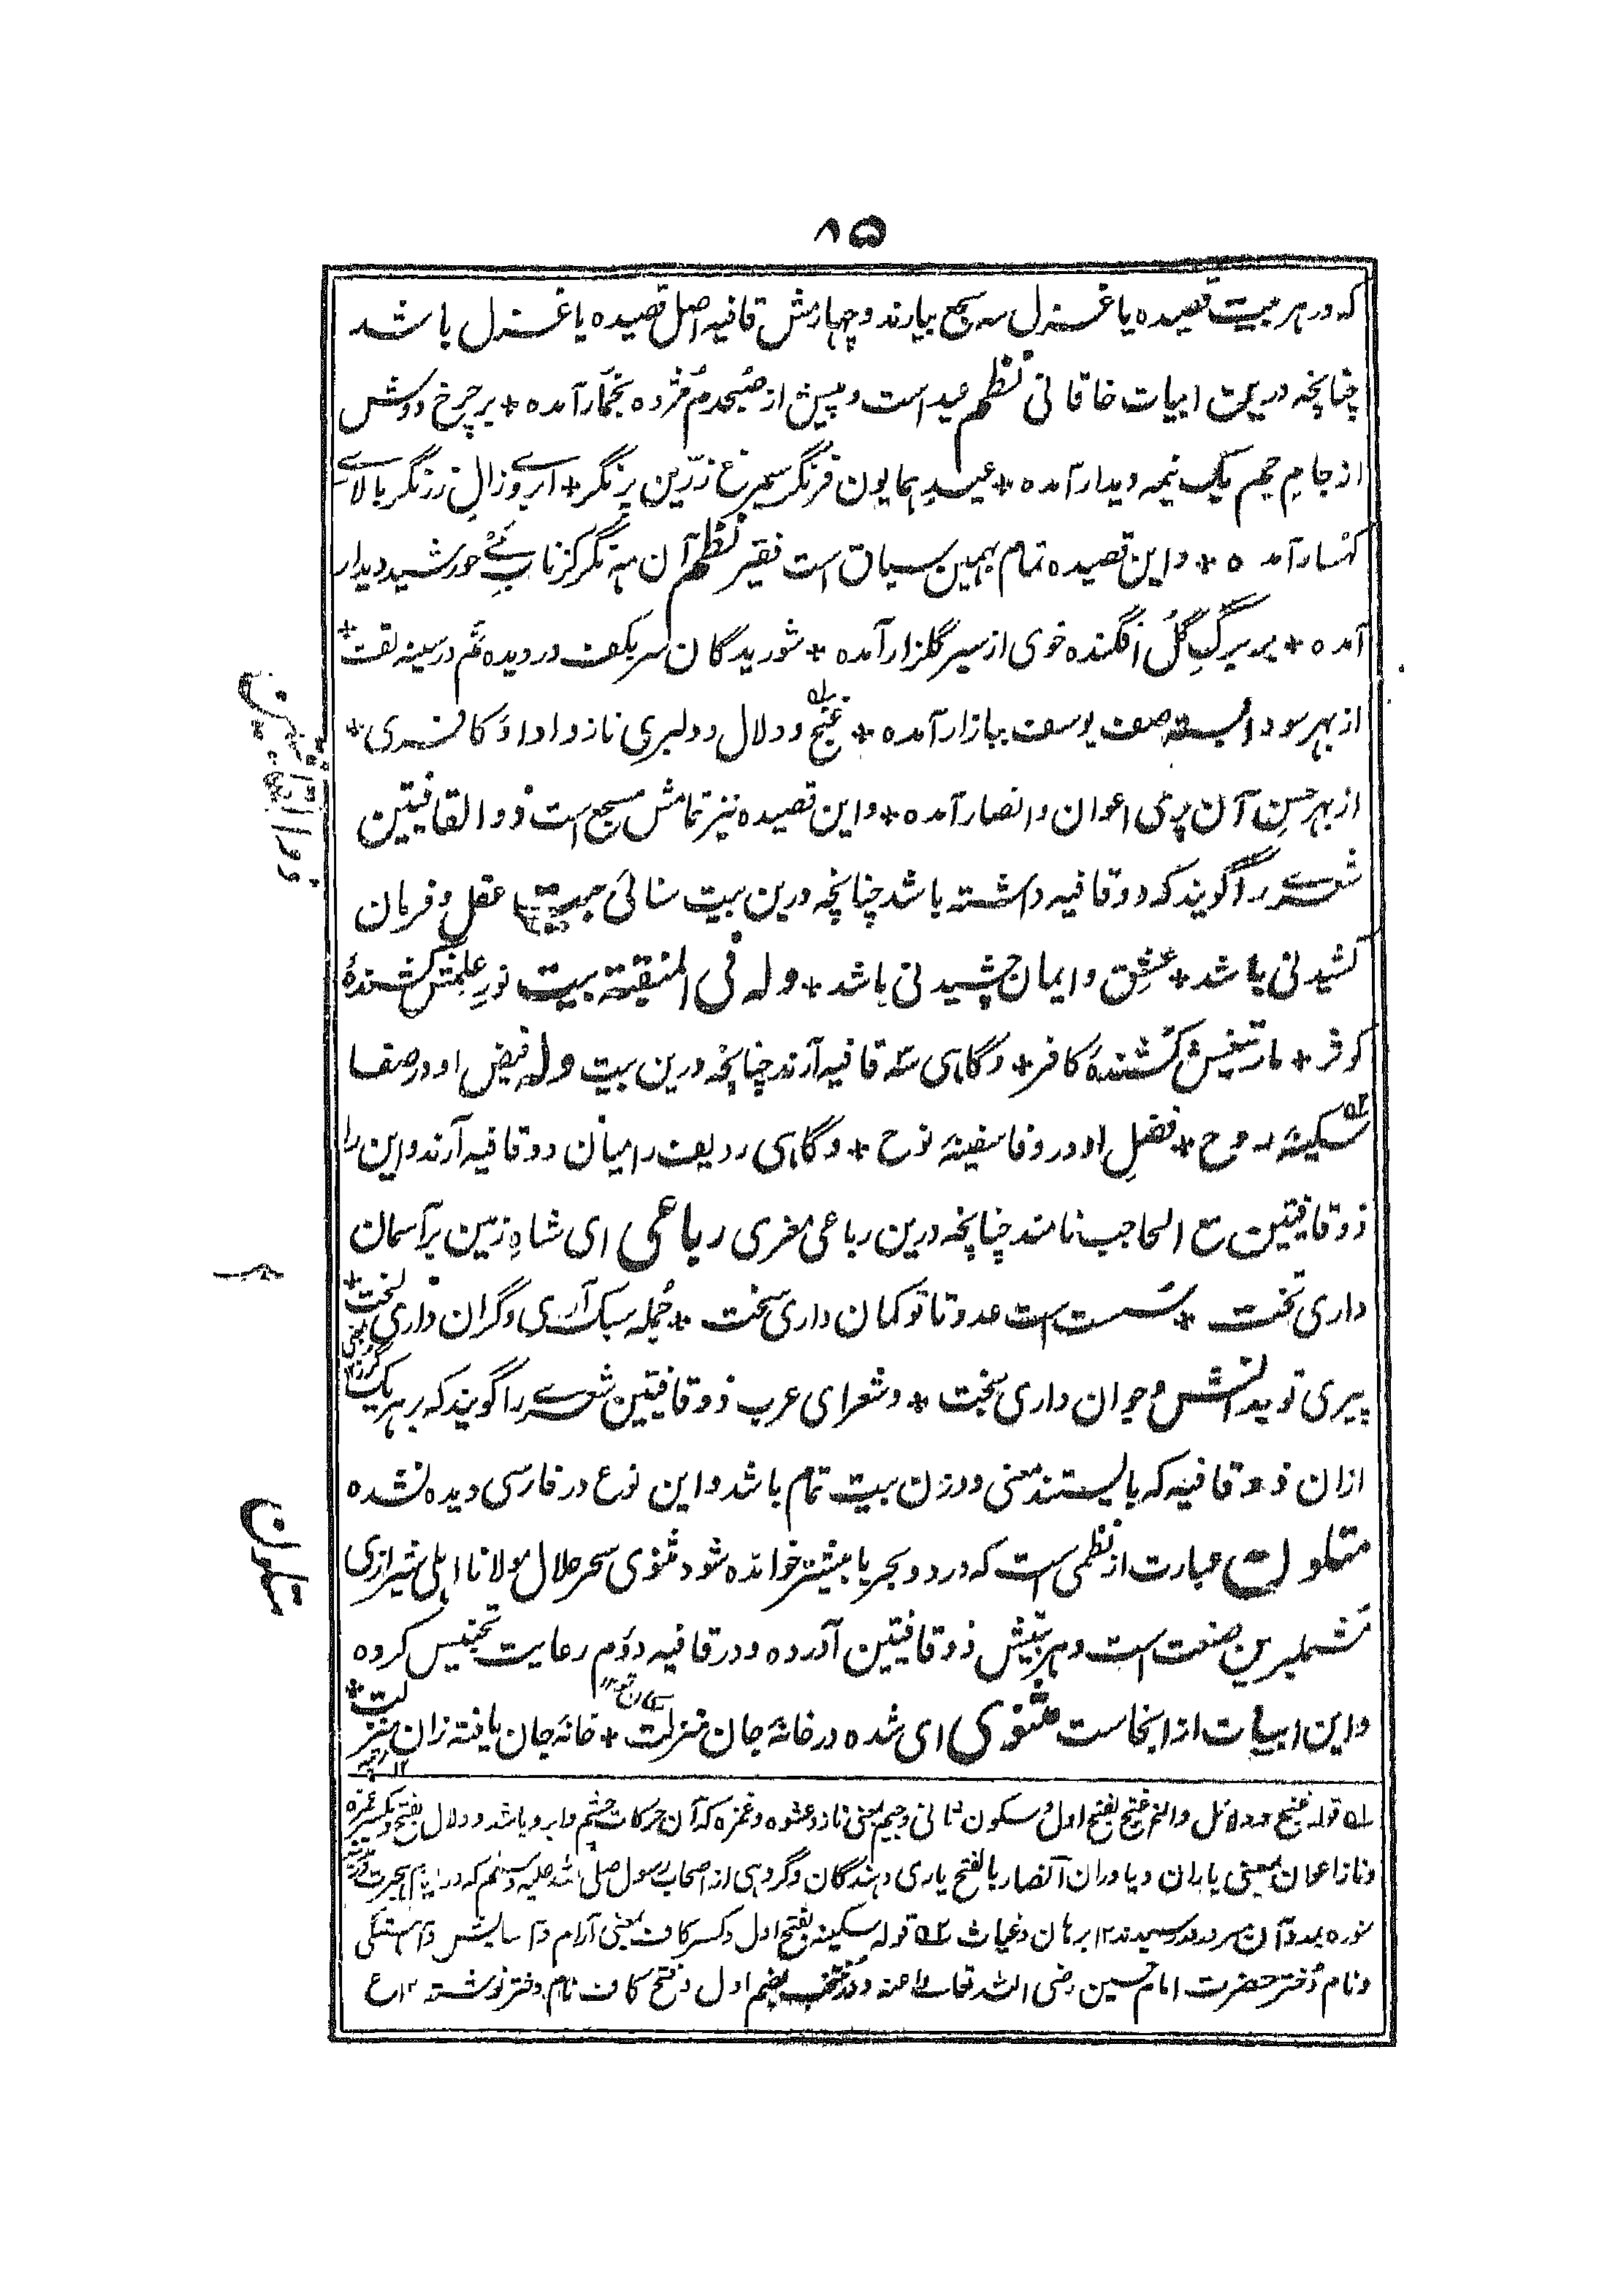 ۸۵
که در هر بیت قصیده یا غزل سه سجع بیارند و چهارمش قافیه اصل قصیده یا غزل باشد
چنانچه درین ابیات خاقانی نظم عید است و پیش از صبحدم مژده بخمار آمده + بر چرخ دوش
از جام جم یک نیمه دیدار آمده + عید همایون فر نگر سیمرغ زرین پر نگر + ابروی زال زر نگر بالای
کهسار آمده + و این قصیده تمام بهمین سیاق است فقیر نظم آن مه نگر کز تاب می خورشید دیدار
آمده + بر برگ گل افگنده خوی از سیر گلزار آمده + شوریدگان سر بکف در دیده نم در سینه تف +
از بهر سودا بسته صف یوسف ببازار آمده + غنج و دلال و دلبری ناز و ادا و کافری +
از بهر حسن آن پری اعوان و انصار آمده + و این قصیده نیز تمامش مسجع است ذو القافیتین
شعری را گویند که دو قافیه داشته باشد چنانچه درین بیت سنائی بیت عقل و فرمان
کشیدنی باشد + عشق و ایمان چشیدنی باشد + وله فی المنقبة بیت نور علمش کشندهٔ
کوثر + نار تیغش کشندهٔ کافر + و گاهی سه قافیه آرند چنانچه درین بیت وله فیض او در صفا
سکینهٔ روح + فضل او در وفا سفینهٔ نوح + و گاهی ردیف را میان دو قافیه آرند و این را
ذو قافیتین مع الحاجب نامند چنانچه درین رباعی مغری رباعی ای شاه زمین بر آسمان
داری تخت + سست است عدو تا تو کمان داری سخت + حمله سبک آری و گران داری لخت +
پیری تو بدانش و جوان داری بخت + و شعرای عرب ذو قافیتین شعری را گویند که بر هر یک
ازان ذو قافیه که بایستند معنی و وزن بیت تمام باشد و این نوع در فارسی دیده نشده
متلون عبارت از نظمی است که در دو بحر یا بیشتر خوانده شود مثنوی سحر حلال مولانا اهلی شیرازی
مشتمل برین صنعت است و هر بیتش ذو قافیتین آورده و در قافیه دوم رعایت تجنیس کرده
و این ابیات از انجاست مثنوی ای شده در خانهٔ جان منزلت + خانهٔ جان یافته زان منزلت +
۱ قوله غنج و دلال و الخ غنج بفتح اول و سکون ثانی و جیم بمعنی ناز و عشوه و غمزه که آن حرکات چشم و ابرو باشد و دلال بفتح و بکسر غمزه
و ناز اعوان بمعنی یاران و یاوران انصار بالفتح یاری دهندگان و گروهی از اصحاب رسول صلی الله علیه وسلم که در ایام هجرت
منوره بمدد آن سرور رسیدند ۱۲ برهان و غیاث ۲ قوله سکینه بفتح اول و کسر کاف بمعنی آرام و آسایش و آهستگی
و نام دختر حضرت امام حسین رضی الله تعالی عنه و در منتخب بضم اول و فتح کاف نام دختر نوشته ۱۲ ع
ذو القافیتین
متلون